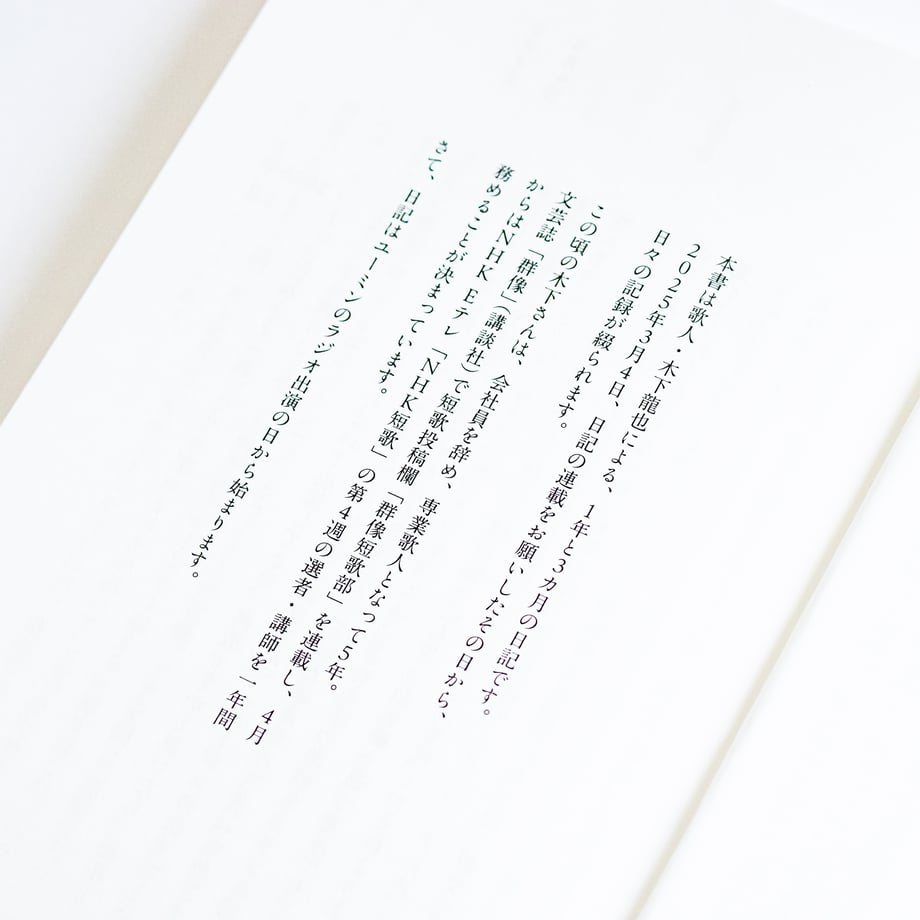 本書は歌人・木下龍也による、1年と3カ月の日記です。
2025年3月4日、日記の連載をお願いしたその日から、
日々の記録が綴られます。
この頃の木下さんは、会社員を辞め、専業歌人となって5年。
文芸誌「群像」(講談社)で短歌投稿欄「群像短歌部」を連載し、4月
からはNHK Eテレ「NHK短歌」の第4週の選者・講師を一年間
務めることが決まっています。
さて、日記はユーミンのラジオ出演の日から始まります。